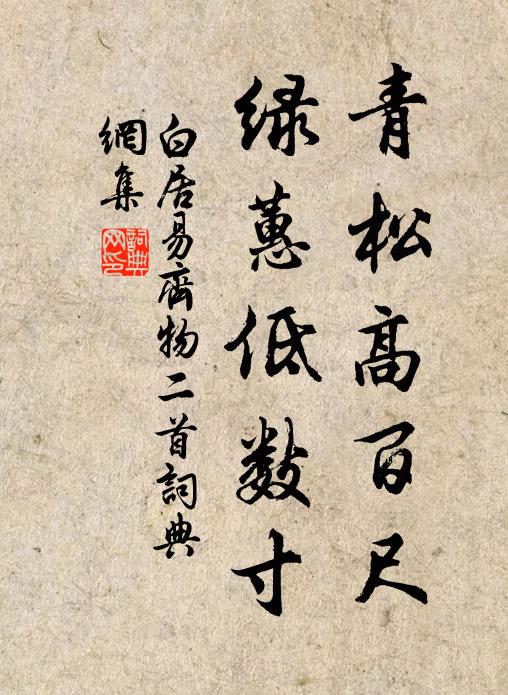 青松高百尺
绿蕙低数寸
白居易齊物二首詞典
網集
詞典
网印